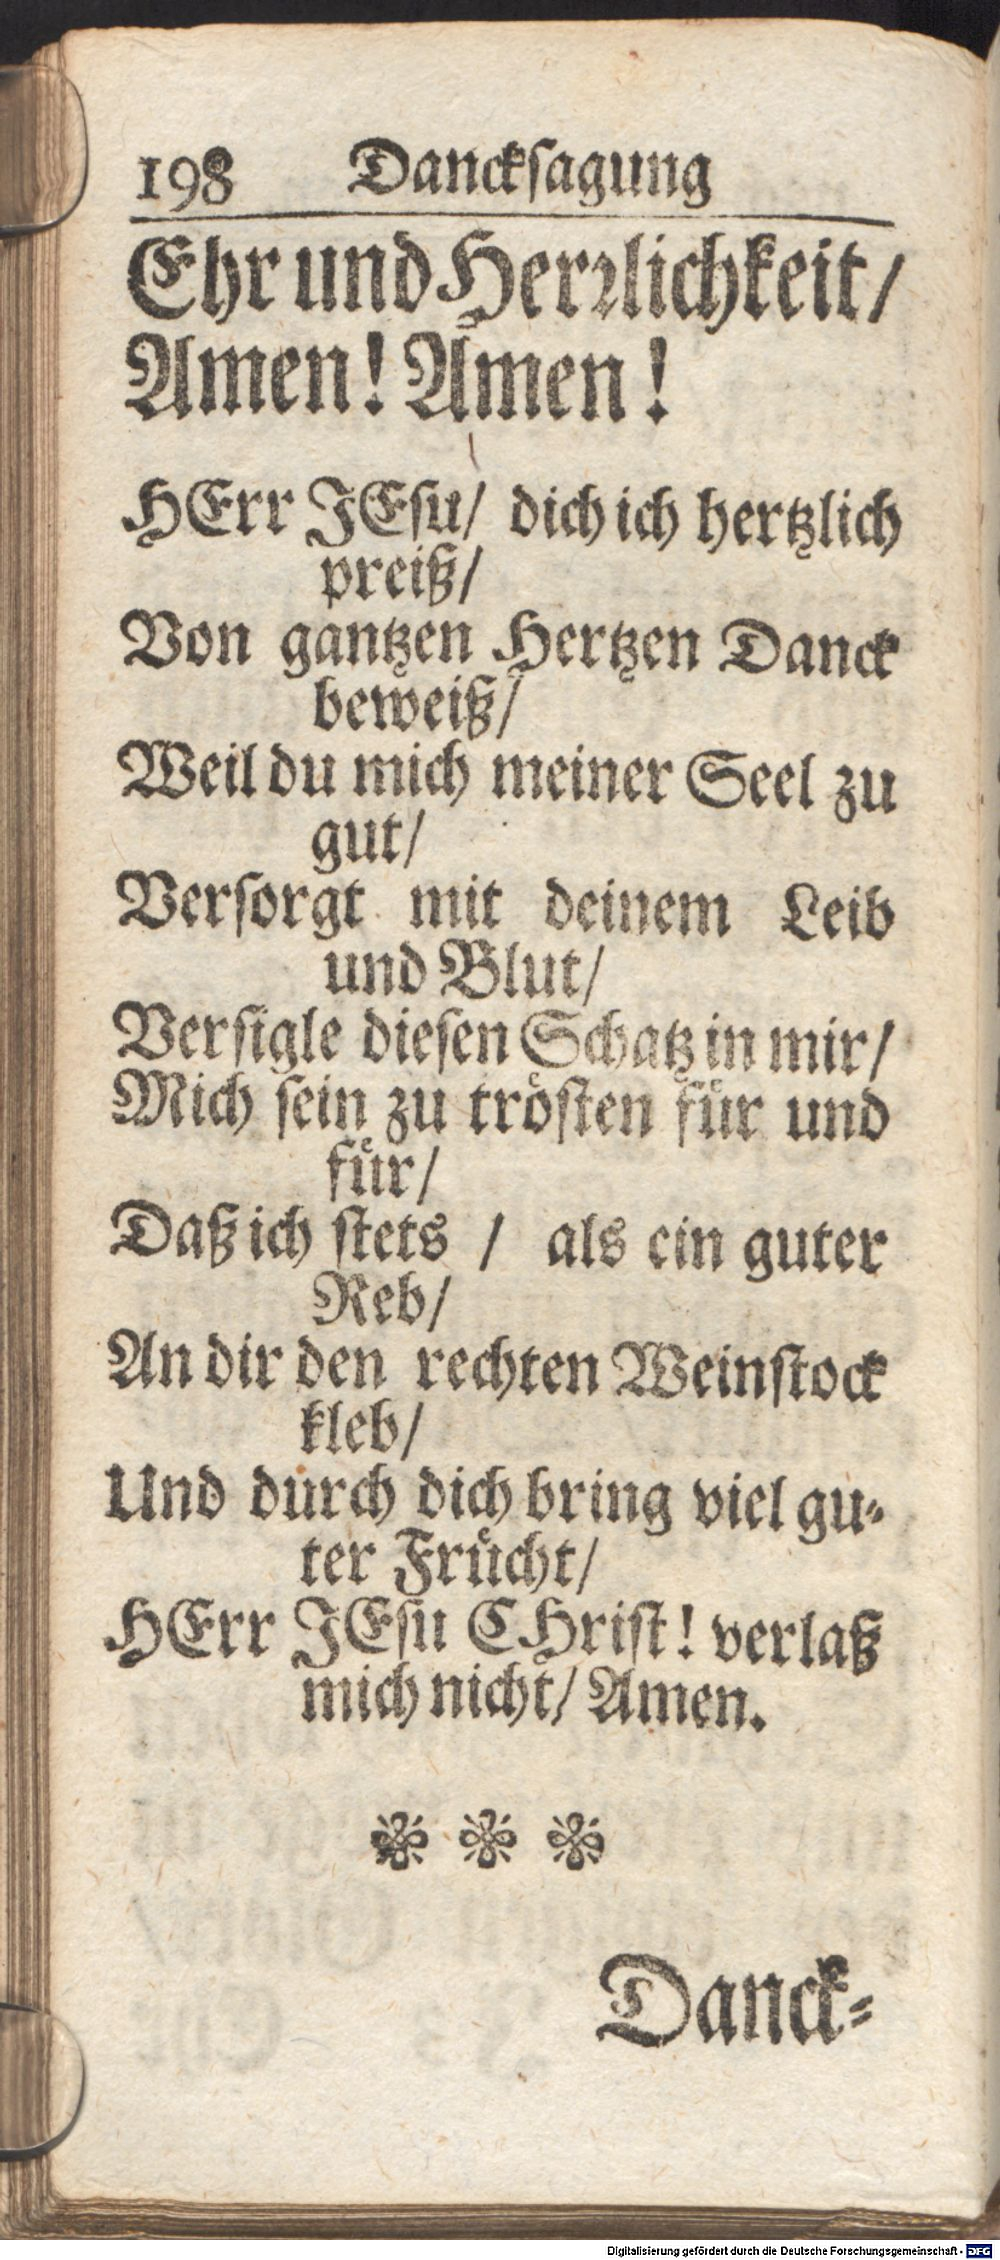 198 Danckſagung
Ehr und Herꝛlichkeit/
Amen! Amen!
HErr JEſu/ dich ich hertzlich
preiß/
Von gantzen Hertzen Danck
beweiß/
Weil du mich meiner Seel zu
gut/
Verſorgt mit deinem Leib
und Blut/
Verſigle dieſen Schatz in mir/
Mich ſein zu troͤſten fuͤr und
fuͤr/
Daß ich ſtets / als ein guter
Reb/
An dir den rechten Weinſtock
kleb/
Und durch dich bring viel gu⸗
ter Fruͤcht/
HErr JEſu CHriſt! verlaß
mich nicht/ Amen.
Danck⸗
Digitalisierung gefördert durch die Deutsche Forschungsgemeinschaft - DFG